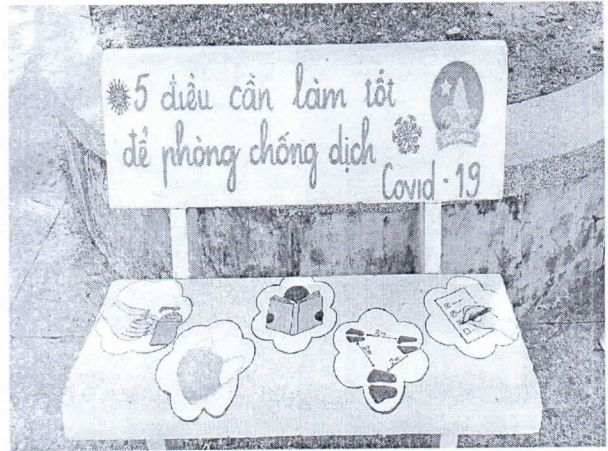 5 điều cần làm tốt
để phòng chống dịch
Covid - 19
2m
2m
2m